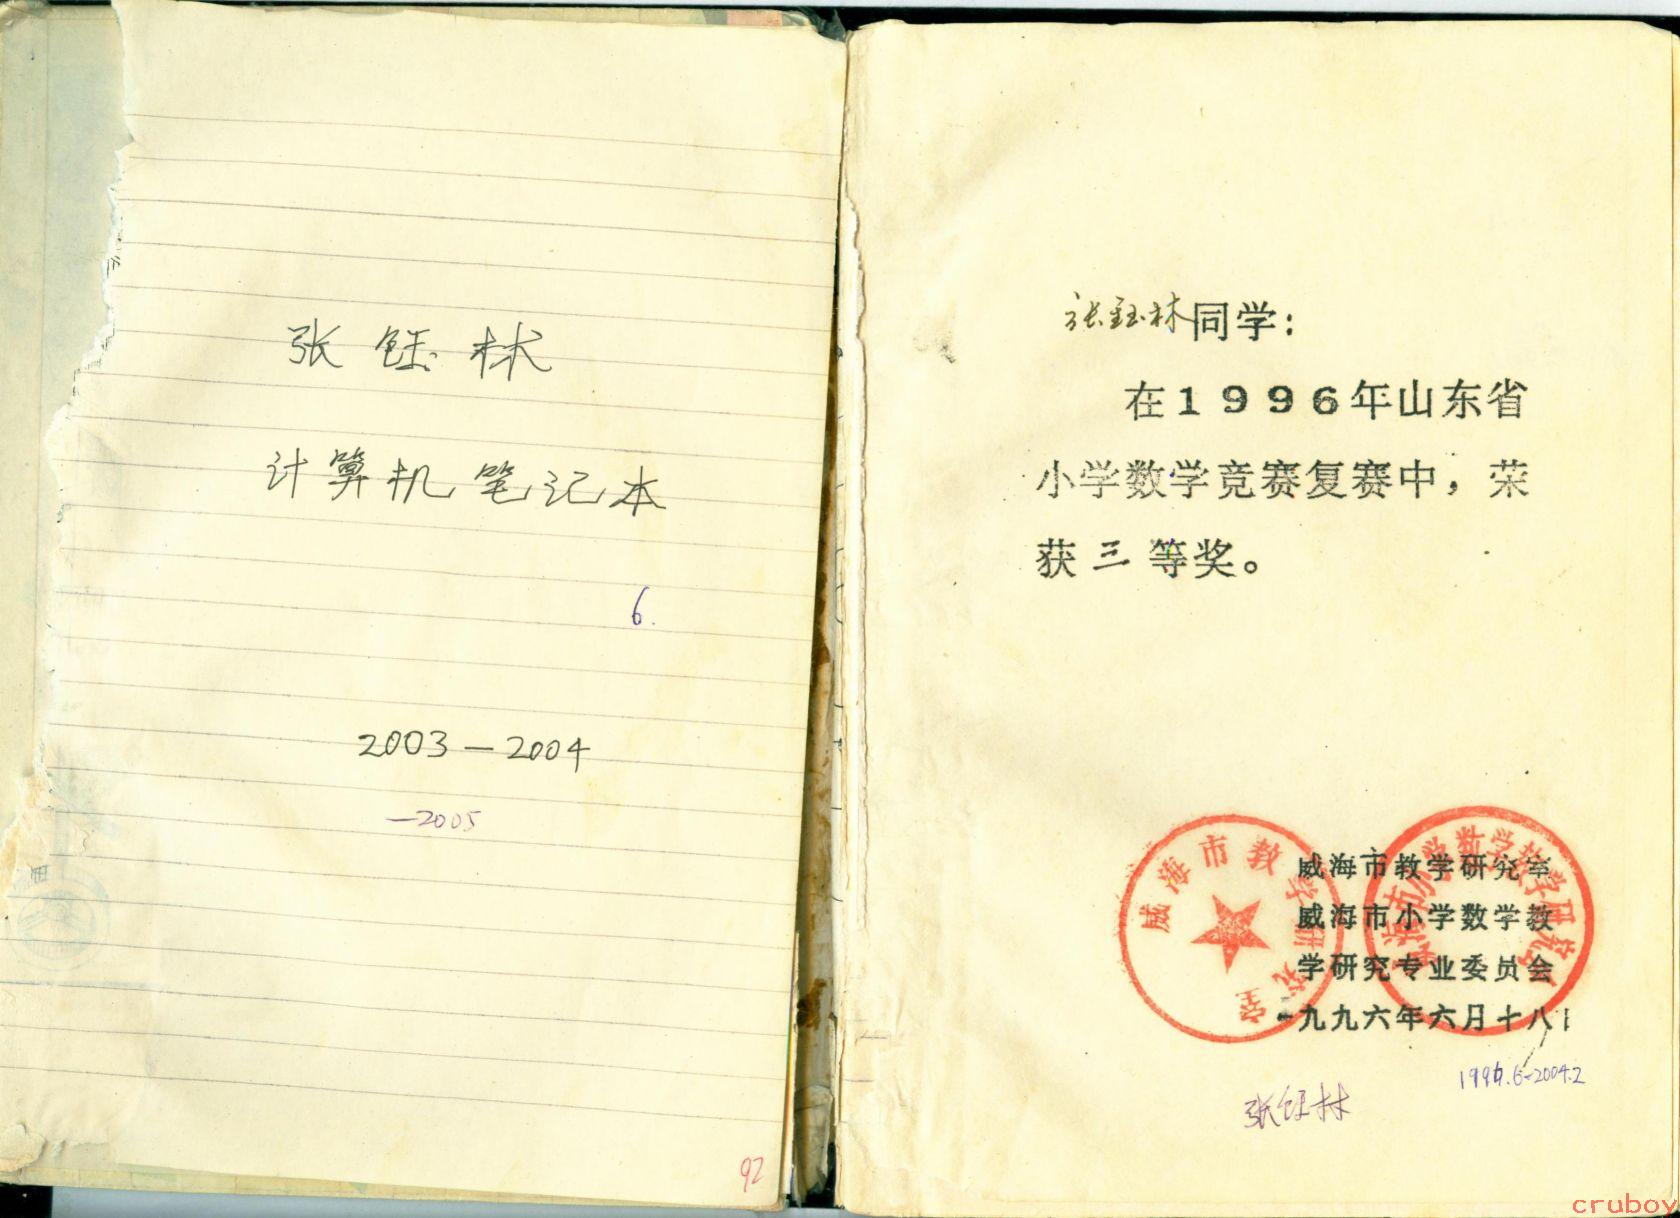 张钰林
计算机笔记本
6.
2003—2004
—2005
92
张钰林同学：
在1996年山东省
小学数学竞赛复赛中，荣
获三等奖。
威海市教学研究室
威海市教学研究室
威海市小学数学教
学研究专业委员会
一九九六年六月十八
1996.6-2004.2
张钰林
cruboy